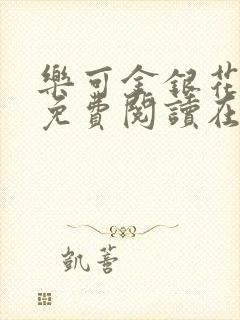 樂可金銀花
免費閱讀在
凱薈